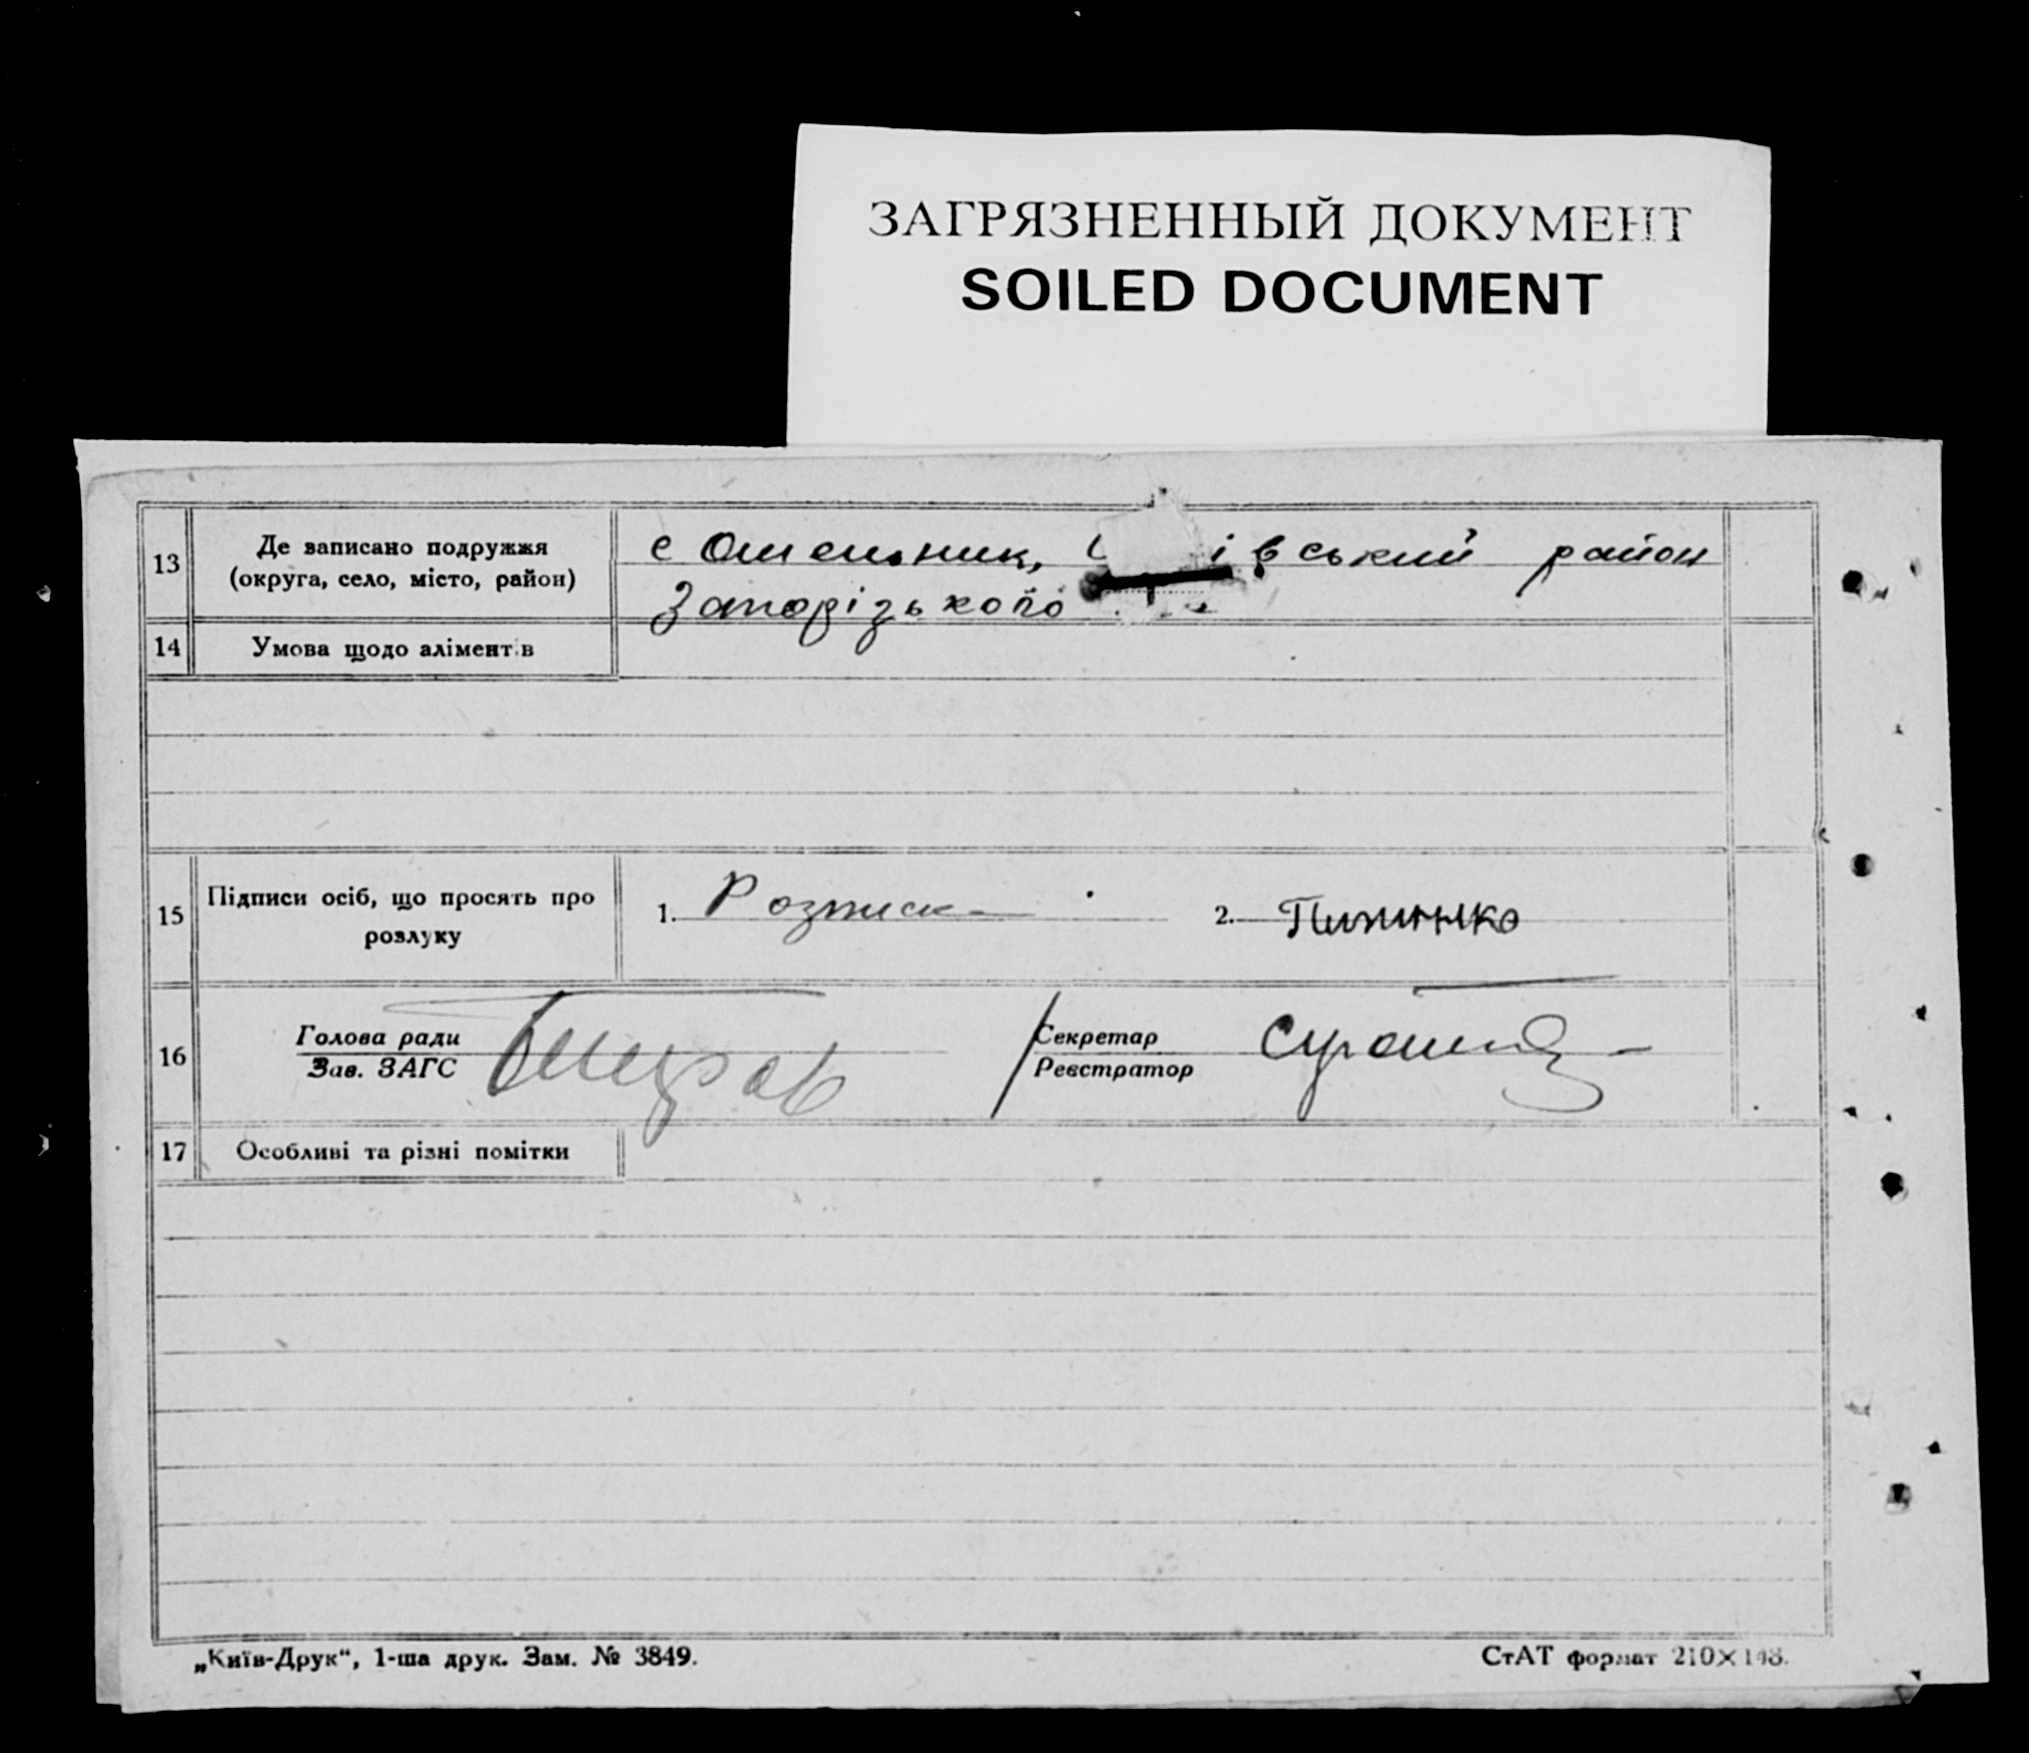 ЗАГРЯЗНЕННЫЙ ДОКУМЕНТ
SOILED DOCUMENT
13 Де записано подружжя
(округа, село, місто, район)
с Омельник, івський район
Запорізького
14 Умова щодо аліментів
15 Підписи осіб, що просять про
розлуку
1. Розписк 2.
16 Голова ради
Зав. ЗАГС
Секретар
Реєстратор
17 Особливі та різні помітки
„Київ-Друк“, 1-ша друк. Зам. № 3849.
СтАТ формат 210×148.